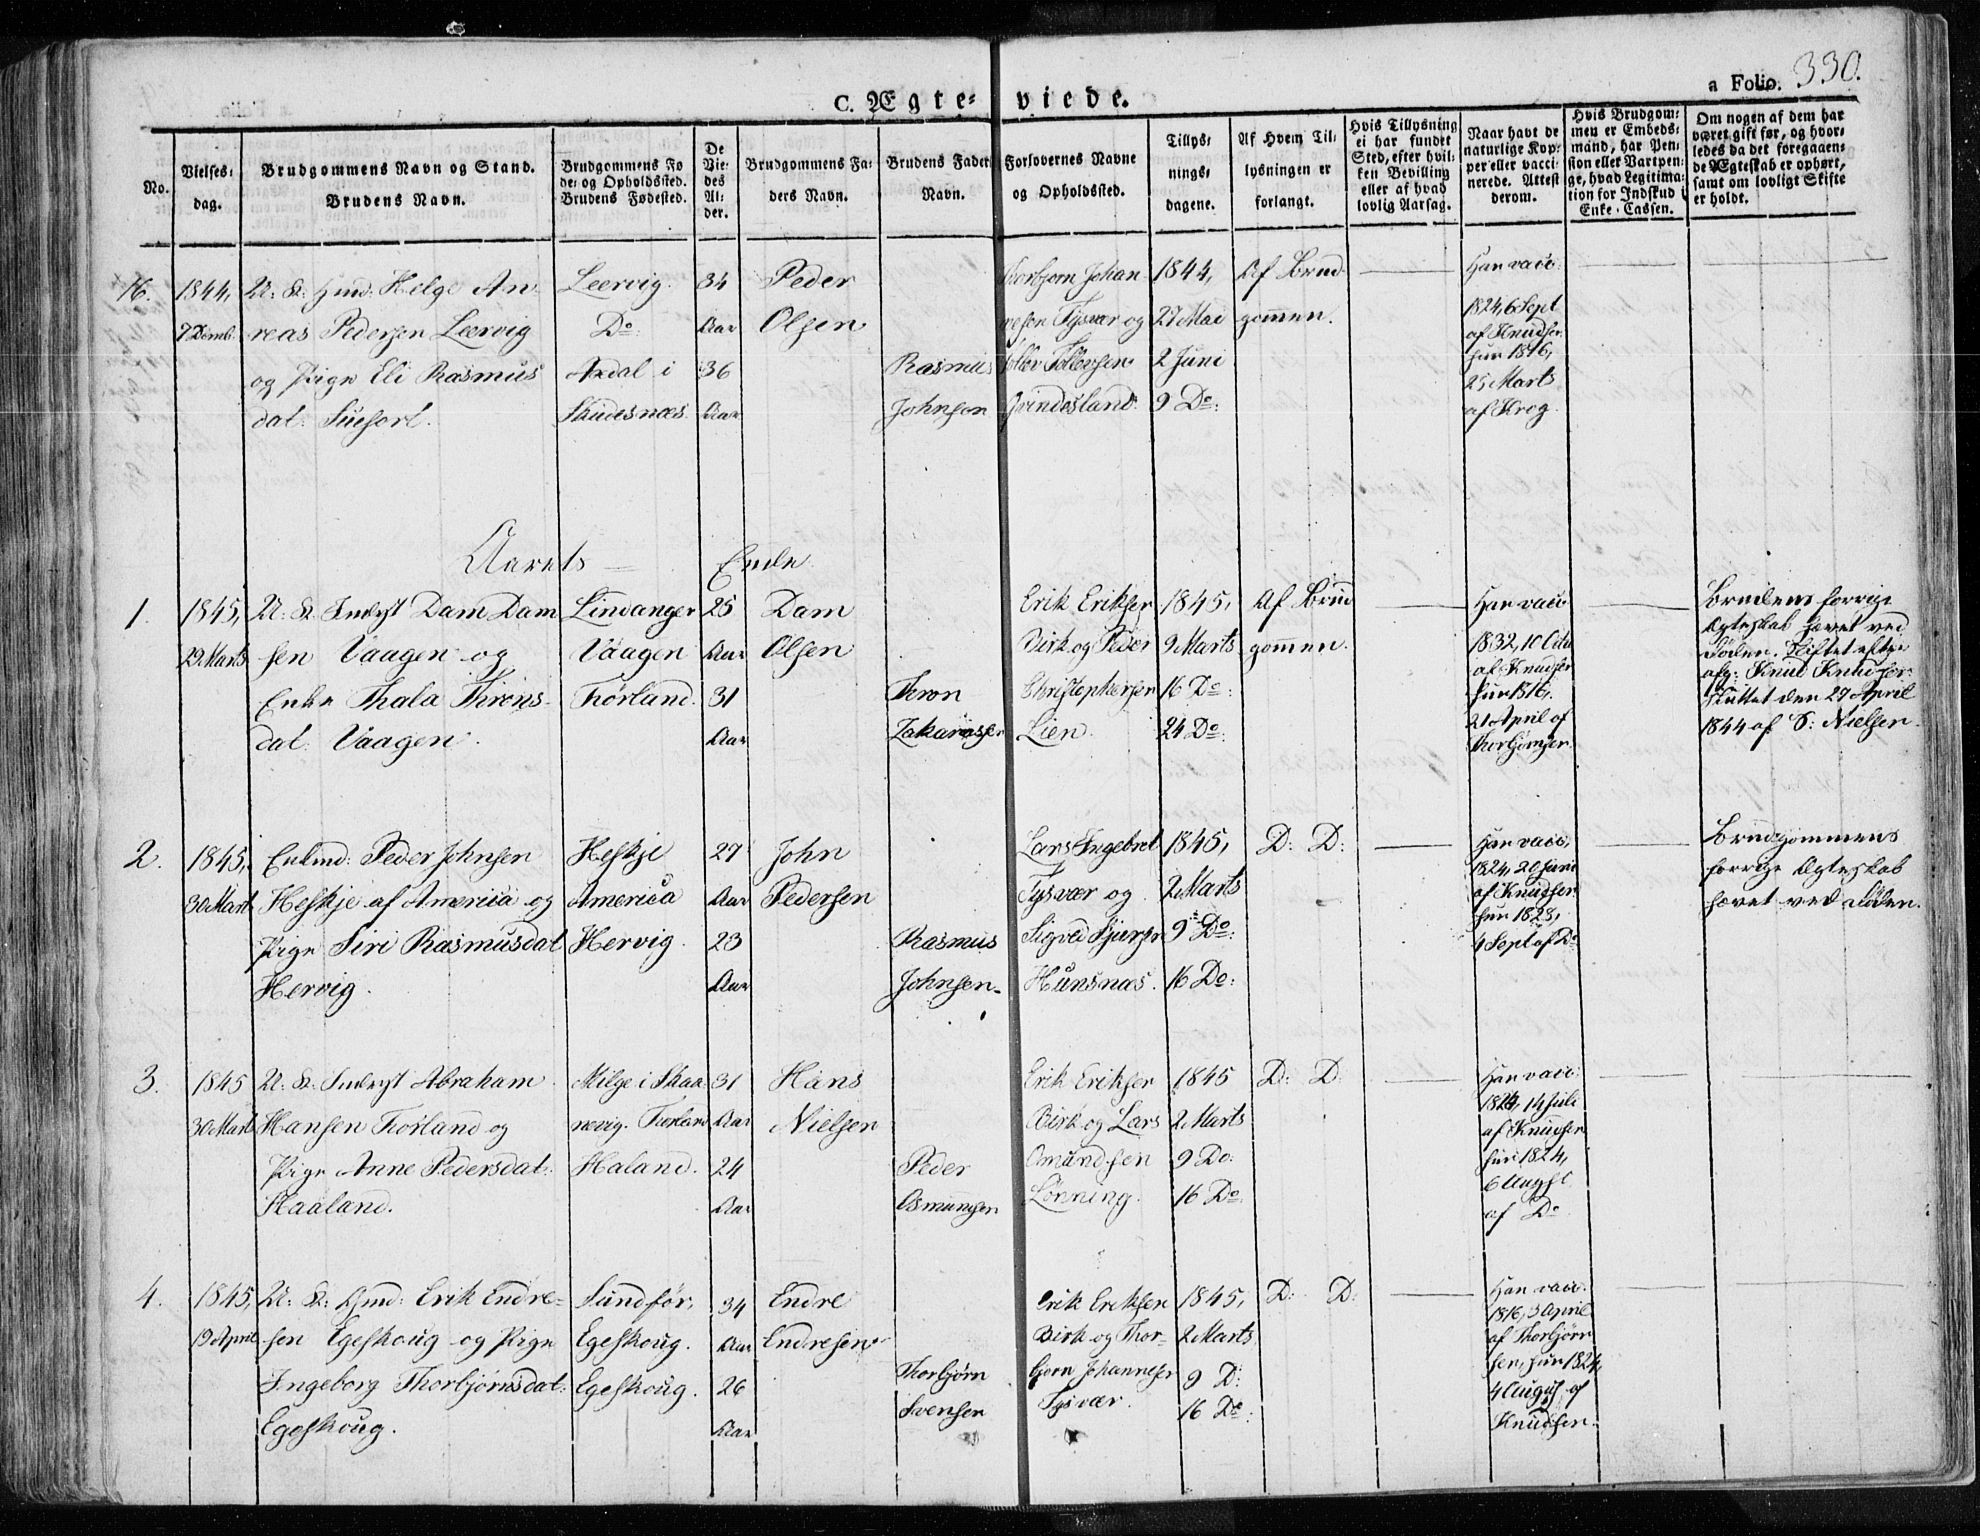 C. Ægteviede.
a Folio. 330.
No.
Vielses:
dag.
Brudgommens Navn og Stand.
Brudens Navn.
Brudgommens Fø
de: og Opholdssted.
Brudens Fødested.
De
Vie:
des
Al:
der.
Brudgommens Fa:
ders Navn.
Brudens Faders
Navn.
Forlovernes Navne
og Opholdssted.
Tillys:
nings:
dagene.
Af Hvem Til:
lysningen er
forlangt.
Hvis Tillysning
ei har fundet
Sted, efter hvil:
ken Bevilling
eller af hvad
lovlig Aarsag.
Naar havt de
naturlige Kop:
per eller vacci:
nerede. Attest
derom.
Hvis Brudgom:
men er Embeds:
mand, har Pen:
sion eller Vartpen:
ge, hvad Legitima:
tion for Indskud i
Enke-Cassen.
Om nogen af dem har
været gift før, og hvor:
ledes da det foregaaen:
de Ægteskab er ophørt,
samt om lovligt Skifte
er holdt.
16.
1844,
7 Decmb.
U: K: Helge An-
reas Pedersen Leervig
og Pige Eli Rasmus
dat:
Leervig.
Do
Axdal i
Skudesnæs
34
Aar
36
Aar
Peder
Olsen
Rasmus
Johnson
Thorbjørn Johan-
nesen Tysvær og
Tollev Tollevsen
Grindesland.
1844,
27 Mai
2 Juni
9 Do:
Af Brud
gommen.
Han vacc:
1824, 6 Sept
af Knudsen
hun 1816,
25 Marts
af Krog.
Aarets Ende
1.
1845,
29 Marts
U: K: Inderst Dam Dam
sen Vaagen og
Enke Thala Throns-
dat: Vaagen.
Lindanger
Vaagen
Førland.
25
Aar
31
Aar
Dam
Olsen
Thron
Zakariasen
Erik Eriksen
Birk og Peder
Christophersen
Lien.
1845,
9 Marts
16 Do:
24 Do:
Af Brud
gommen.
Han vacc
1832, 10 Octb
af Knudsen
hun 1816,
21 April af
Thorbjørnsen.
Brudens forrige
Ægteskab hævet ved
Døden. Skiftet efter
afg: Knud Knudsen
sluttet den 29 April
1844 af S: Nielsen.
2.
1845,
30 Mart
Enkmd: Peder Johnsen
Heskje af America og
Pige Siri Rasmusdat
Hervig.
Heskje
America
Hervig.
29
Aar
23
Aar
John
Pedersen
Rasmus
Johnsen.
Lars Ingebret
Tysvær og
Sigved Sjursen
Hunsnæs.
1845,
2 Marts
9 Do:
16 Do:
D: D:
Han vacc,
1824, 20 Juni
af Knudsen
hun 1823,
4 Sept af Do
Brudgommens
forrige Ægteskab
hævet ved Døden.
3.
1845
30 Mart
U: K: Inderst Abraham
Hansen Førland og
Pige Anne Pedersdat:
Haaland.
Milge i Skaa
nevig. Førland
Haland.
31
Aar
24
Aar
Hans
Nielsen
Peder
Osmundsen
Erik Eriksen
Birk og Lars
Omundsen
Lønning.
1845
2 Marts
9 Do:
16 Do.
D: D:
Han vacc:
1824, 14 Juli
af Knudsen
hun 1824,
6 Augst
af Do
4.
1845,
19 April
U: K: Gmd: Erik Endre-
sen Egeskoug og Pige
Ingeborg Thorbjørnsdat:
Egeskoug.
Sundfør,
Egeskoug.
Egeskoug.
34
Aar
26
Aar
Endre
Endresen
Thorbjørn
Svensen
Erik Eriksen
Birk og Thor-
bjørn Johannesen
Tysvær.
1845,
2 Marts
9 D:
16 Do:
D: D:
Han vacc:
1816, 3 April
af Thorbjørn
sen, hun 1824,
4 August af
Knudsen.